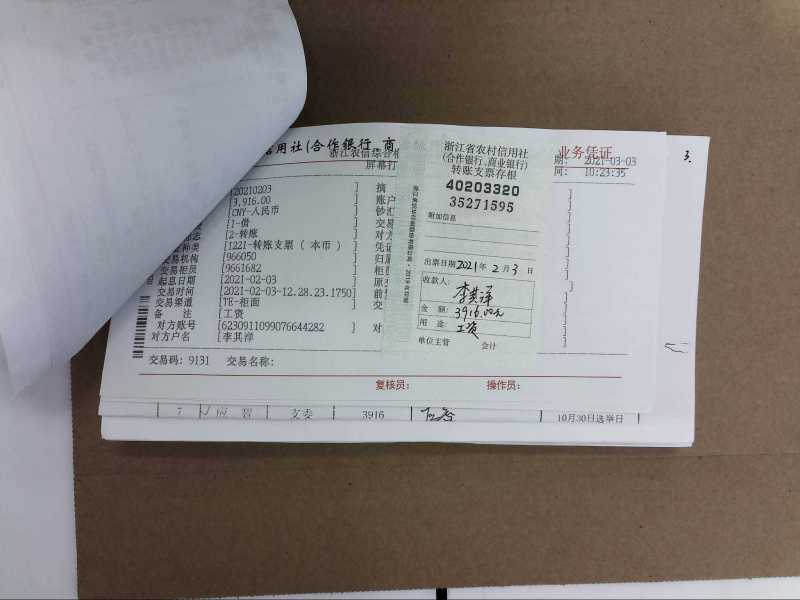 信用社(合作银行、商
业务凭证
浙江农信综合
屏幕打
期: 2021-03-03
间: 10:23:35
[20210203 ] 摘
[3,916.00 ] 账户
[CNY-人民币 ] 钞汇
[1-借 ] 交易
标志 [2-转账 ] 对方
种类 [1221-转账支票(本币) ] 凭证
交易机构 [966050 ] 归属
交易柜员 [9661682 ] 柜面
起息日期 [2021-02-03 ] 原交
交易时间 [2021-02-03-12.28.23.1750] 前
交易渠道 [TE-柜面 ] 交
备 注 [工资
对方账号 [6230911099076644282 ] 对
对方户名 [李其洋
交易码: 9131 交易名称:
复核员: 操作员:
浙江省农村信用社
(合作银行、商业银行)
转账支票存根
40203320
35271595
附加信息
出票日期2021年2月3日
收款人:
李其洋
金 额: 3916.00元
用 途: 工资
单位主管 会计
3.
7 支委 3916 10月30日选举日